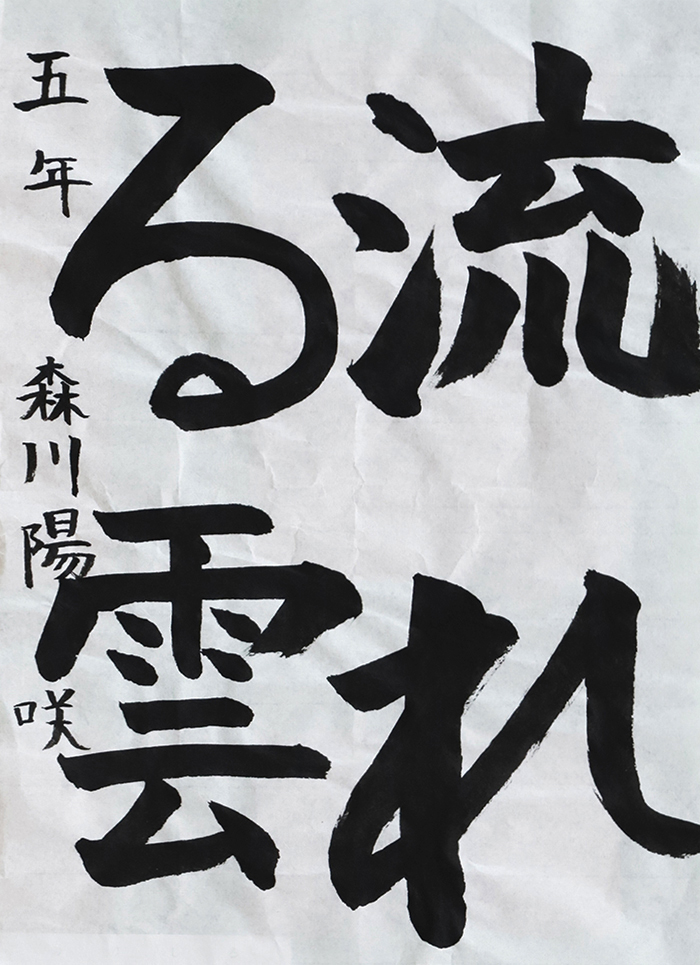 流れ
る雲
五年 森川陽咲